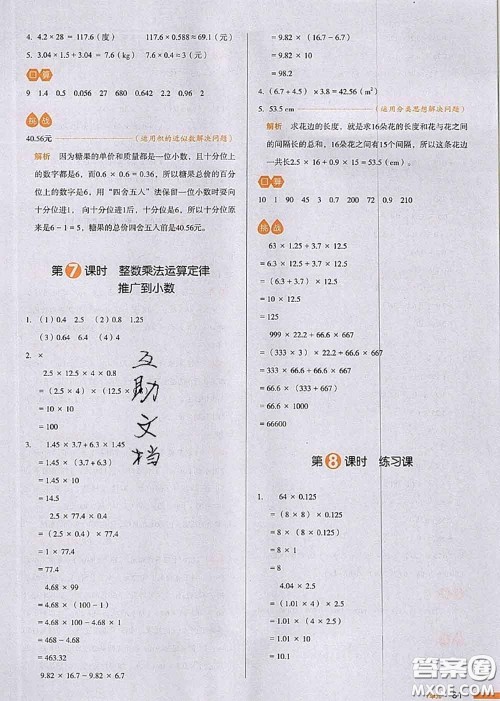 4. 4.2 × 28 = 117.6（度） 117.6 × 0.588 ≈ 69.1（元）
5. 3.04 × 1.5 + 3.04 = 7.6（kg） 7.6 × 0.75 = 5.7（元）
口算
9 1.4 0.5 0.056 27 680 0.642 2.2 0.036 2
挑战
40.56元 （运用积的近似数解决问题）
解析 因为糖果的单价和质量都是一位小数，且十分位上
的数字都是6，而0.6 × 0.6 = 0.36，所以糖果总价的百分
位上的数字是6，用“四舍五入”法保留一位小数时要向
十分位进1，向十分位进1后，十分位是6，所以原来是
来是6 - 1 = 5，糖果的总价四舍五入前是40.56元。
第7课时 整数乘法运算定律
推广到小数
1. （1）0.4 2.5 （2）0.8 1.25
（3）0.64 6.4 （4）4
2. ×
2.5 × 12.5 × 4 × 0.8
=（2.5 × 4）×（12.5 ×
= 10 × 10
= 100
3. 1.45 × 3.7 + 6.3 × 1.45
= 1.45 ×（3.7 + 6.3）
= 1.45 × 10
= 14.5
2.5 × 77.4 × 0.4
=（2.5 × 0.4）× 77.4
= 1 × 77.4
= 77.4
4.68 × 99
= 4.68 ×（100 - 1）
= 4.68 × 100 - 4.68
= 468 - 4.68
= 463.32
9.82 × 16.7 - 9.82 × 6.7
互助文档
= 9.82 ×（16.7 - 6.7）
= 9.82 × 10
= 98.2
4. （6.7 + 4.5）× 3.8 = 42.56（m²）
5. 53.5 cm （运用分类思想解决问题）
解析 求花边的长度，就是求16朵花的长度和花与花之间
的间隔长的总和，16朵花之间有15个间隔，所以这条花边
一共长2.5 × 16 + 0.9 × 15 = 53.5（cm）。
口算
10 1 90 45 3 0.7 200 72 0.9 210
挑战
63 × 1.25 + 3.7 × 12.5
= 6.3 × 12.5 + 3.7 × 12.5
=（6.3 + 3.7）× 12.5
= 10 × 12.5
= 125
999 × 22.2 + 66.6 × 667
=（333 × 3）× 22.2 + 66.6 × 667
= 333 × 66.6 + 66.6 × 667
= 66.6 ×（333 + 667）
= 66.6 × 1000
= 66600
第8课时 练习课
1. 64 × 0.125
=（8 × 8）× 0.125
= 8 ×（8 × 0.125）
= 8 × 1
= 8
4.04 × 2.5
=（1.01 × 4）× 2.5
= 1.01 ×（4 × 2.5）
= 1.01 × 10
答案圈
MXQE.COM